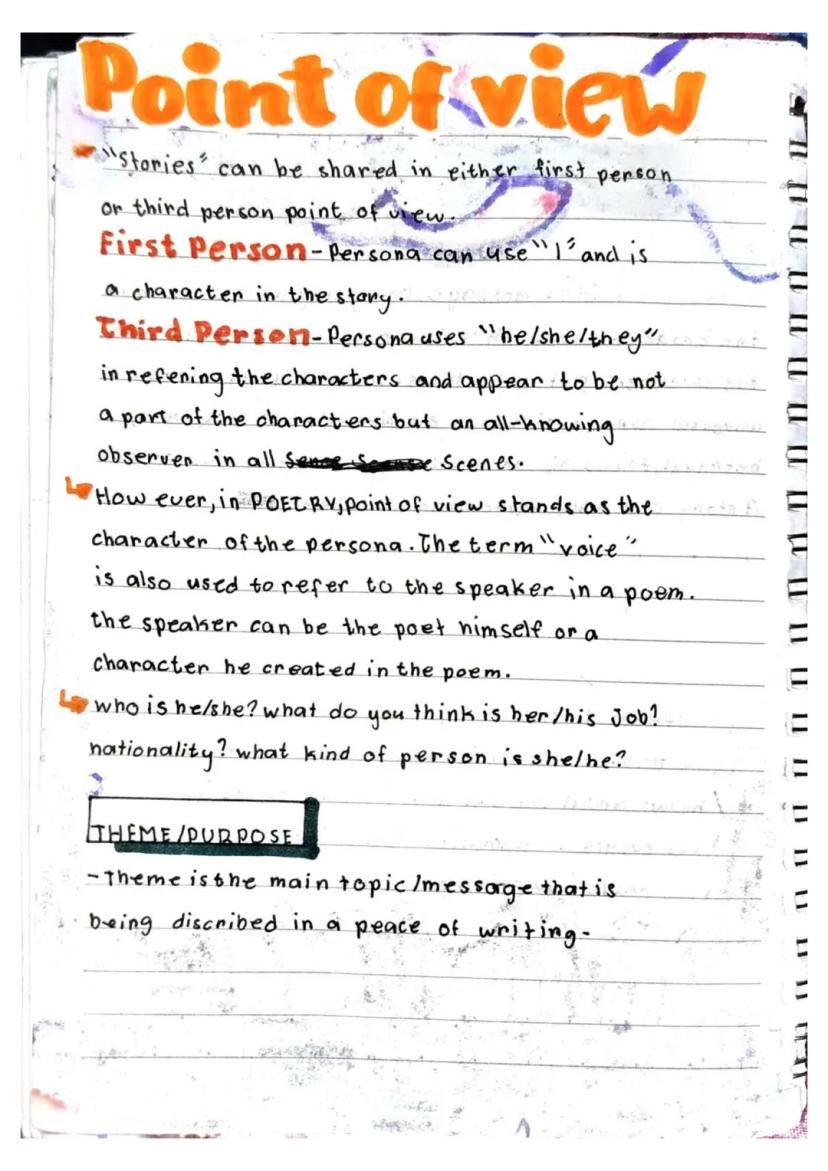 Point of view
"Stories" can be shared in either first person
or third person point of view.
First Person - Persona can use "I" and is
a character in the story.
Third Person - Persona uses "he/she/they"
in refening the characters and appear to be not
a part of the characters but an all-knowing
observer in all scenes.
How ever, in POETRY, point of view stands as the
character of the persona. The term "voice"
is also used to refer to the speaker in a poem.
the speaker can be the poet himself or a
character he created in the poem.
who is he/she? what do you think is her/his Job?
nationality? what kind of person is she/he?
THEME/PURPOSE
- Theme is the main topic/message that is
being discribed in a peace of writing-